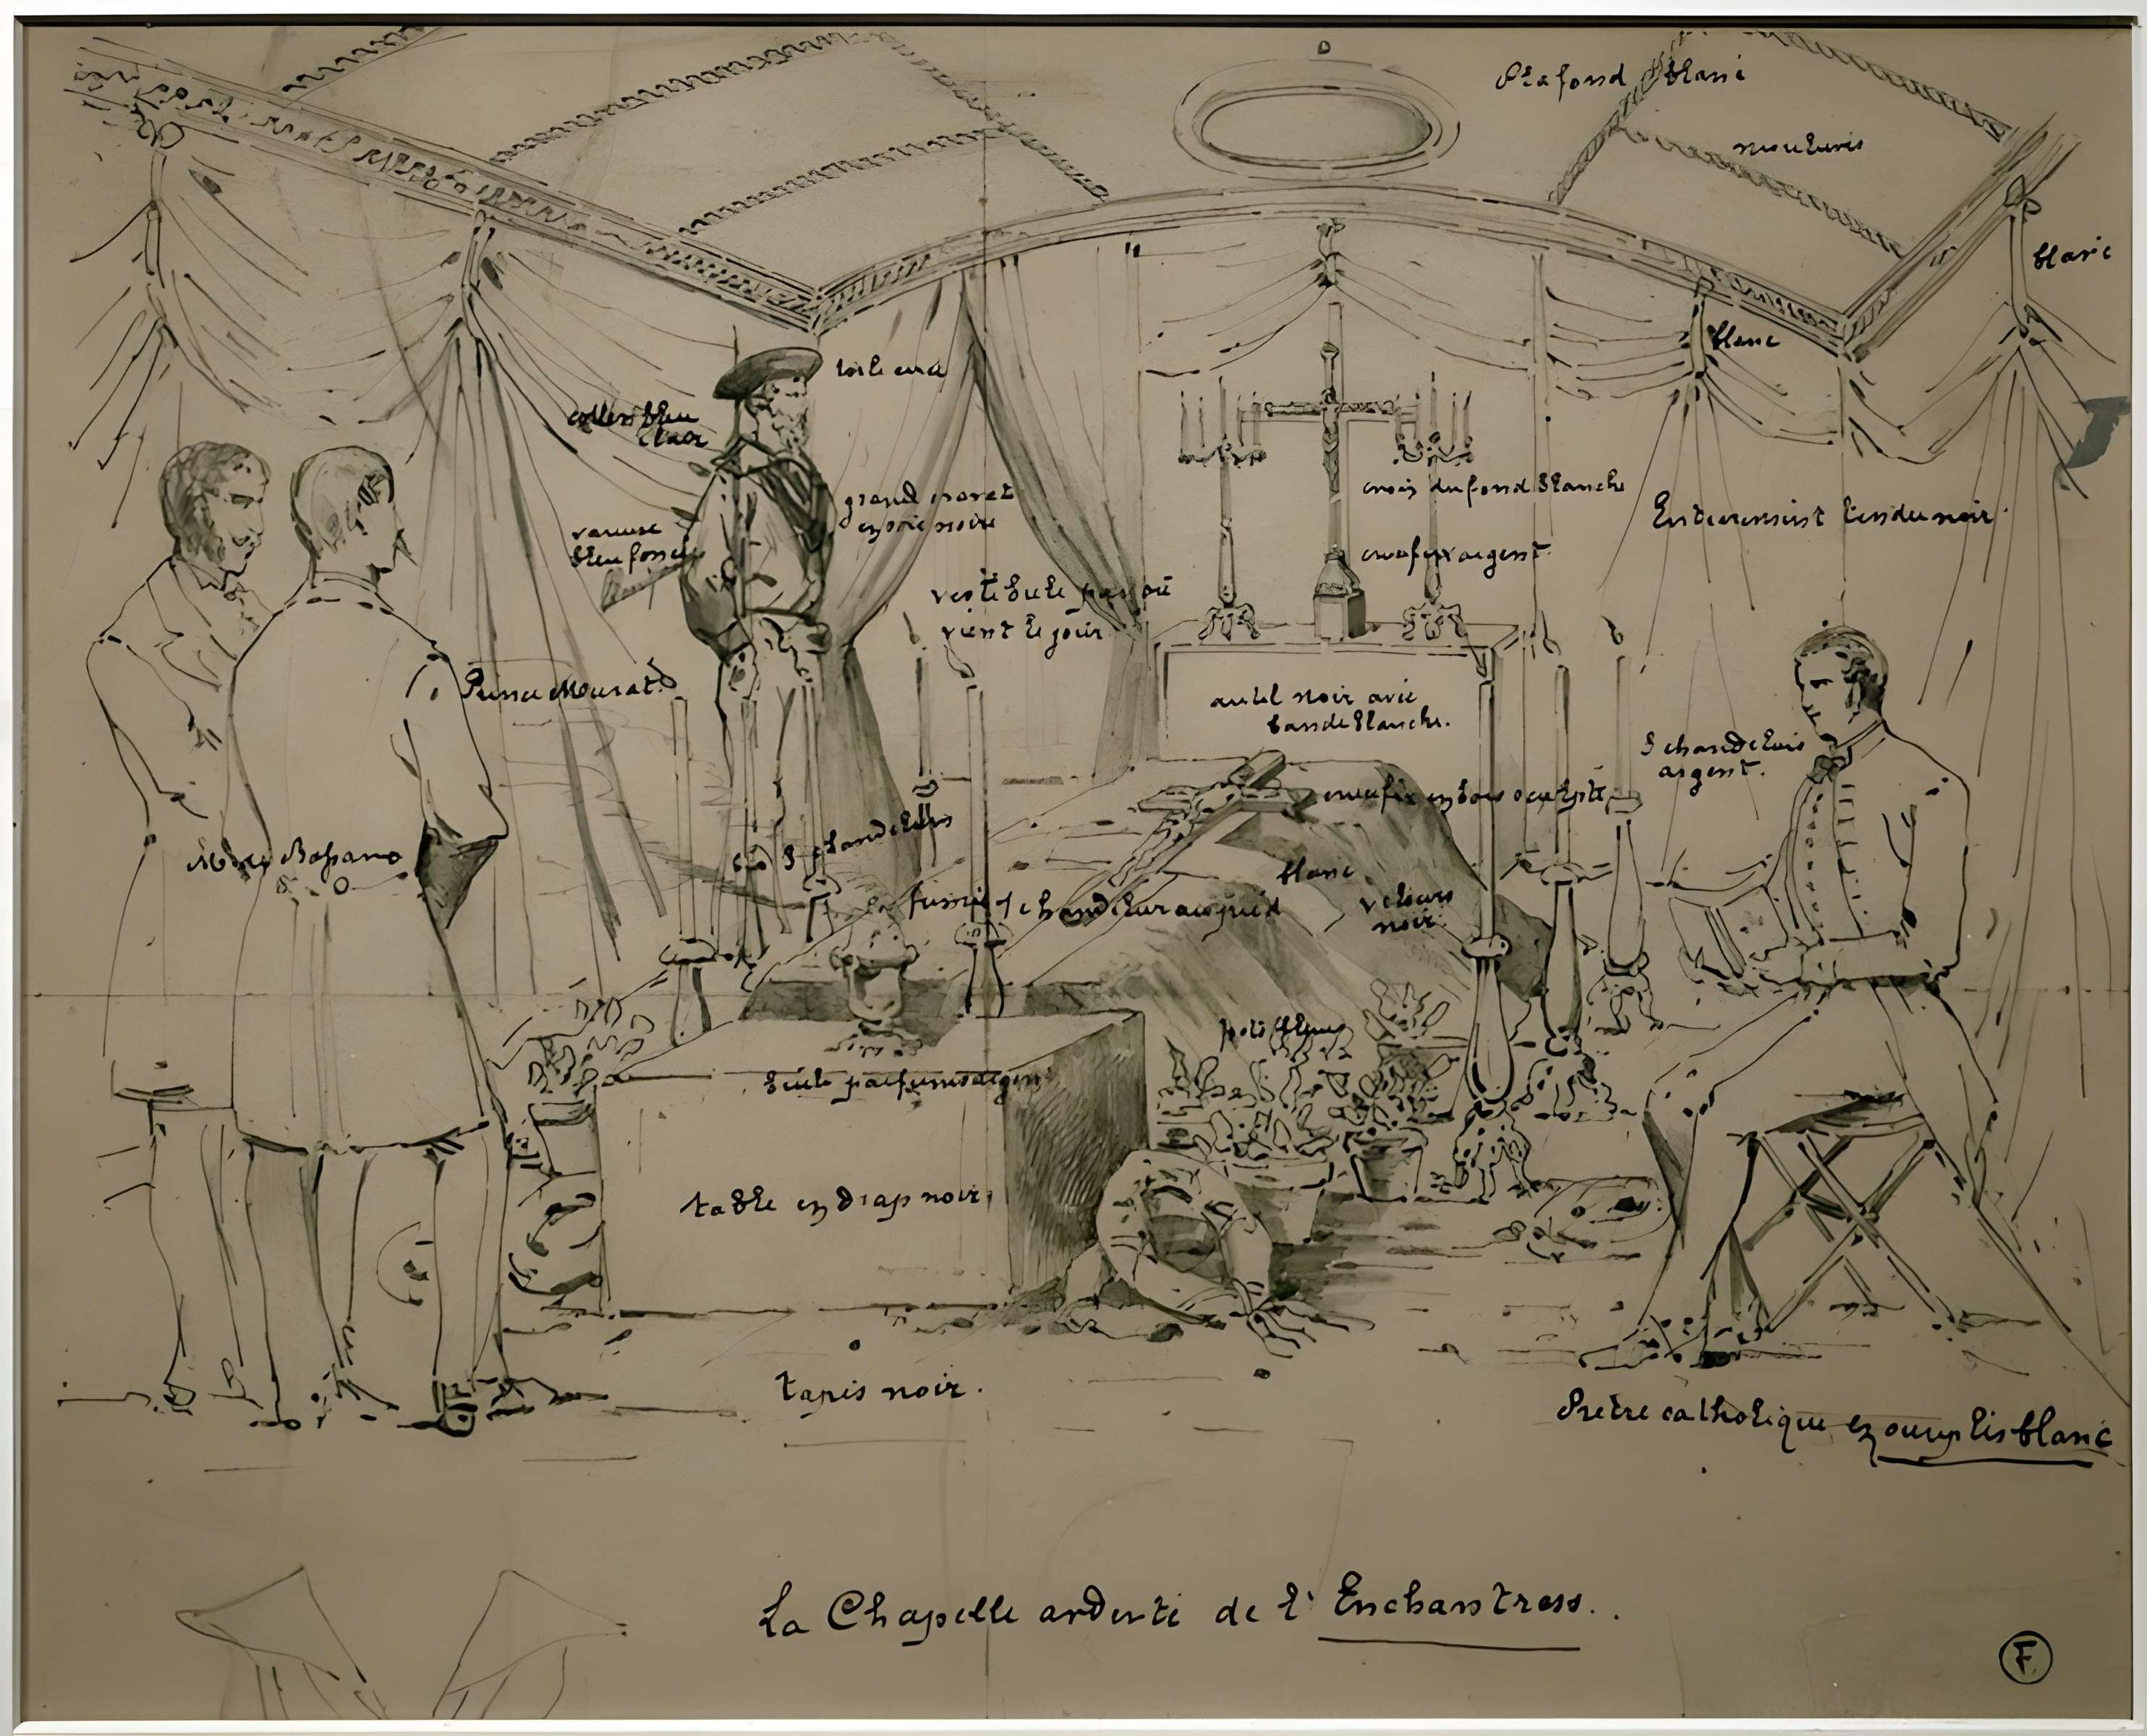 Plafond blanc
moulures
blanc
blanc
toile cirée
collet bleu
clair
grand
en soie noire
vareuse
bleu foncé
croix du fond blanche
Entièrement tendu noir
crucifix argent
vestibule par où
vient le jour
Prince Murat
autel noir avec
bande blanche.
3 chandeliers
argent.
crucifix en bois sculpté
3 chandeliers
blanc
velours
noir
fumée
pots fleurs
brûle parfums argent
table en drap noir
tapis noir.
Prêtre catholique en surplis blanc
La Chapelle ardente de l'Enchantress.
F.